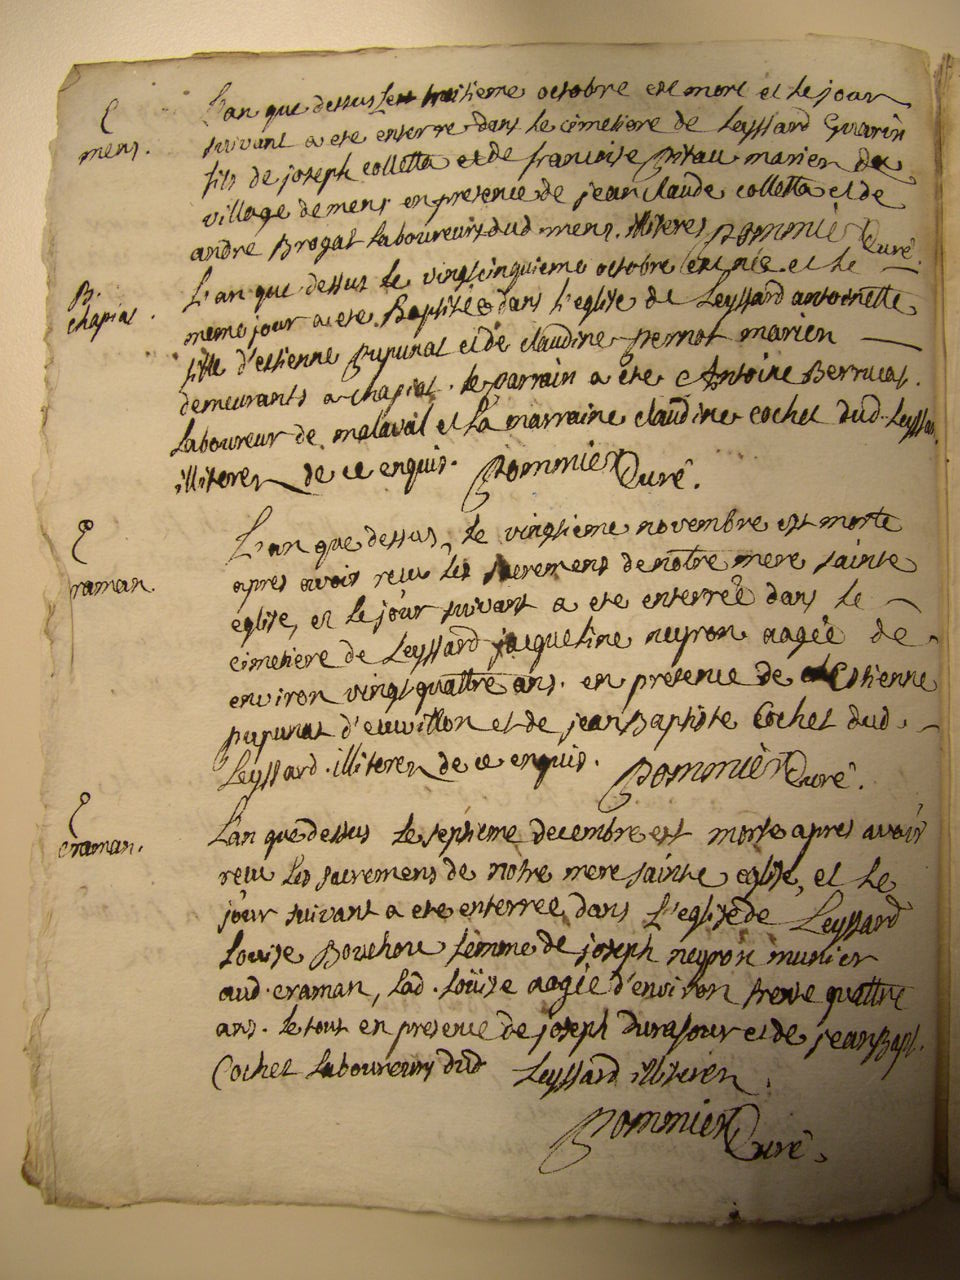 E
mens.
L'an que dessus le huitieme octobre est mort et le jour
suivant a ete enterre dans le cimetiere de Leyssard Guarin
fils de joseph colletta et de francoise mariez du
village de mens en presence de jean claude colletta et de
andré Brogat Laboureurs dud mens. illiteres pommier Curé.
B.
chapiat.
L'an que dessus le vingtcinquieme octobre est née et le
meme jour a ete Baptisée dans l'eglise de Leyssard antoinette
fille d'estienne pupunat et de claudine pernot mariez
demeurants a chapiat. le parrain a ete Antoine Berrucat.
Laboureur de malaval et La marraine claudine cochet dud. Leyssar
illiterez de ce enquis. pommier Curé.
E
raman.
L'an que dessus, le vingtieme novembre est morte
apres avoir recu les sacremens de notre mere sainte
eglise, et le jour suivant a ete enterreé dans le
cimetiere de Leyssard jacqueline neyron aagée de
environ vingt quattre ans. en présence de Estienne
pupunat d'euvillon et de jean Baptiste Cochet dud.
Leyssard. illiterez de ce enquis. pommier Curé.
E
craman.
L'an que dessus le septieme decembre est morte apres avoir
recu les sacremens de notre mere sainte eglise, et le
jour suivant a ete enterreé dans l'eglise de Leyssard
Louise Bouchou femme de joseph neyron munier
aud. craman, lad. Loüise aagée d'environ trente quattre
ans. le tout en presence de joseph Durafour et de jean Bapt.
Cochet Laboureurs dud Leyssard illiterez.
pommier Curé.